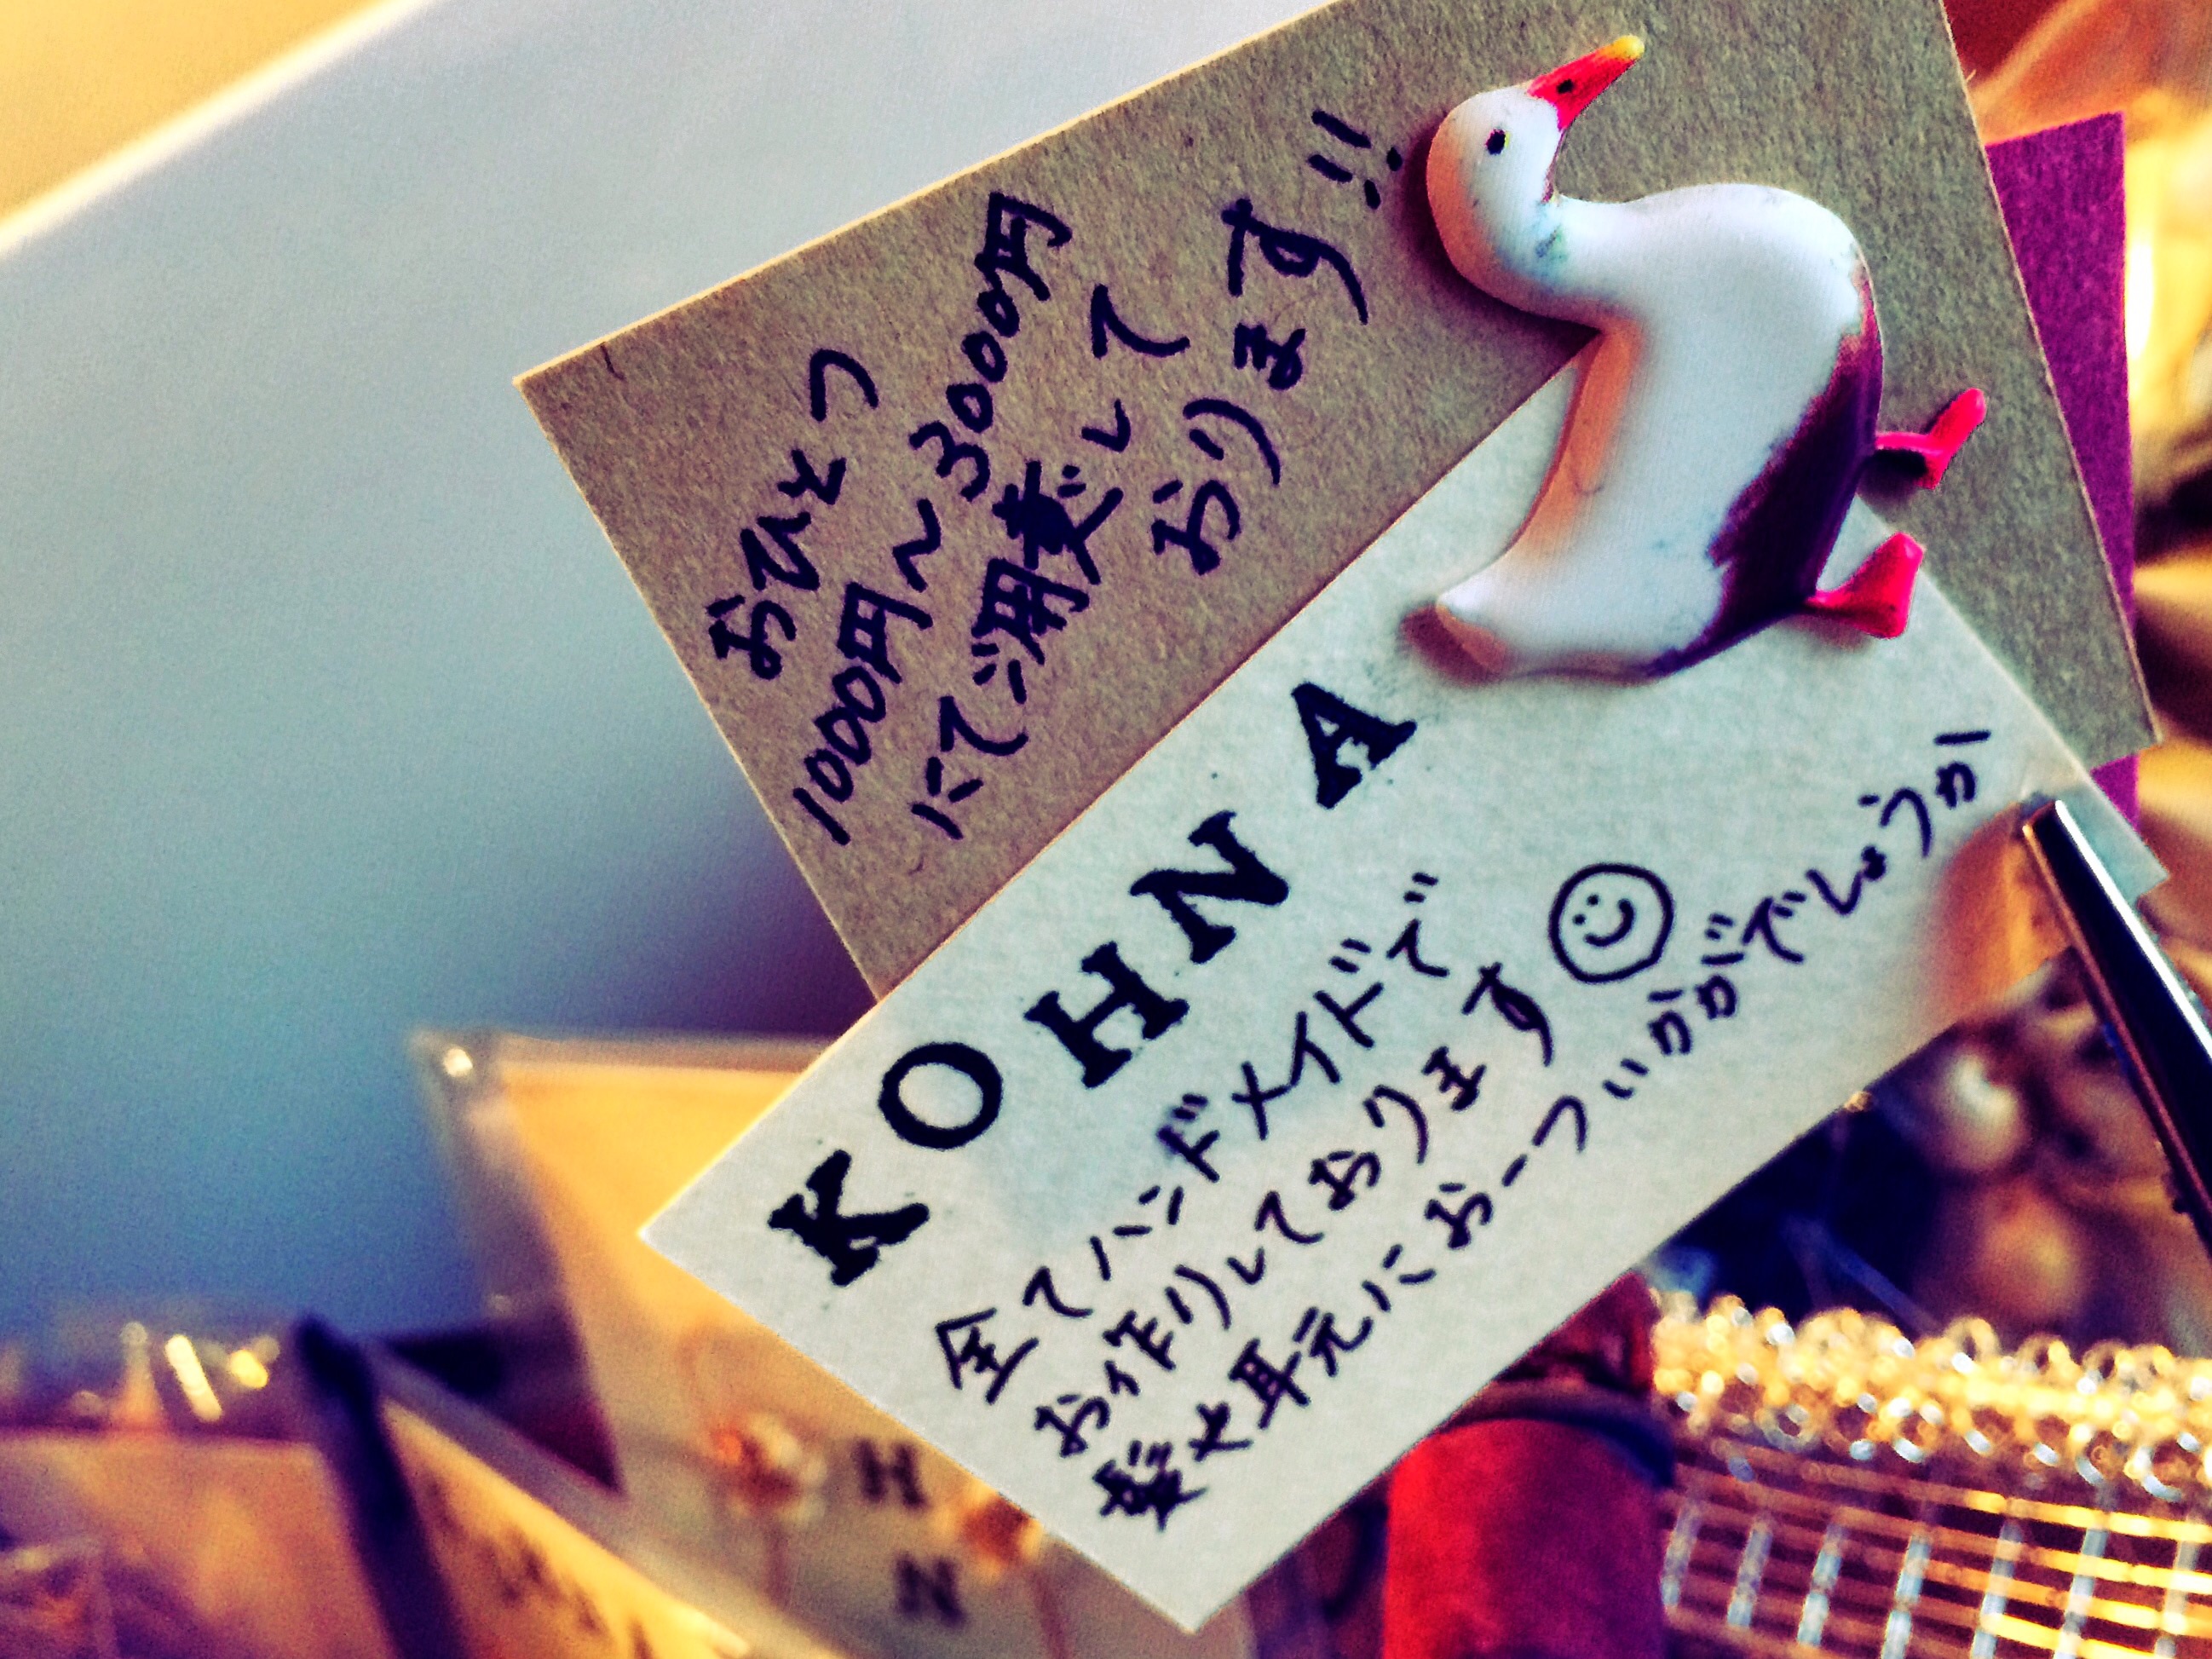 おひとつ
1000円〜3000円
にてご用意して
おります!!
KOHNA
全てハンドメイドで
お作りしております
髪や耳元にお一ついかがでしょうか
H
N